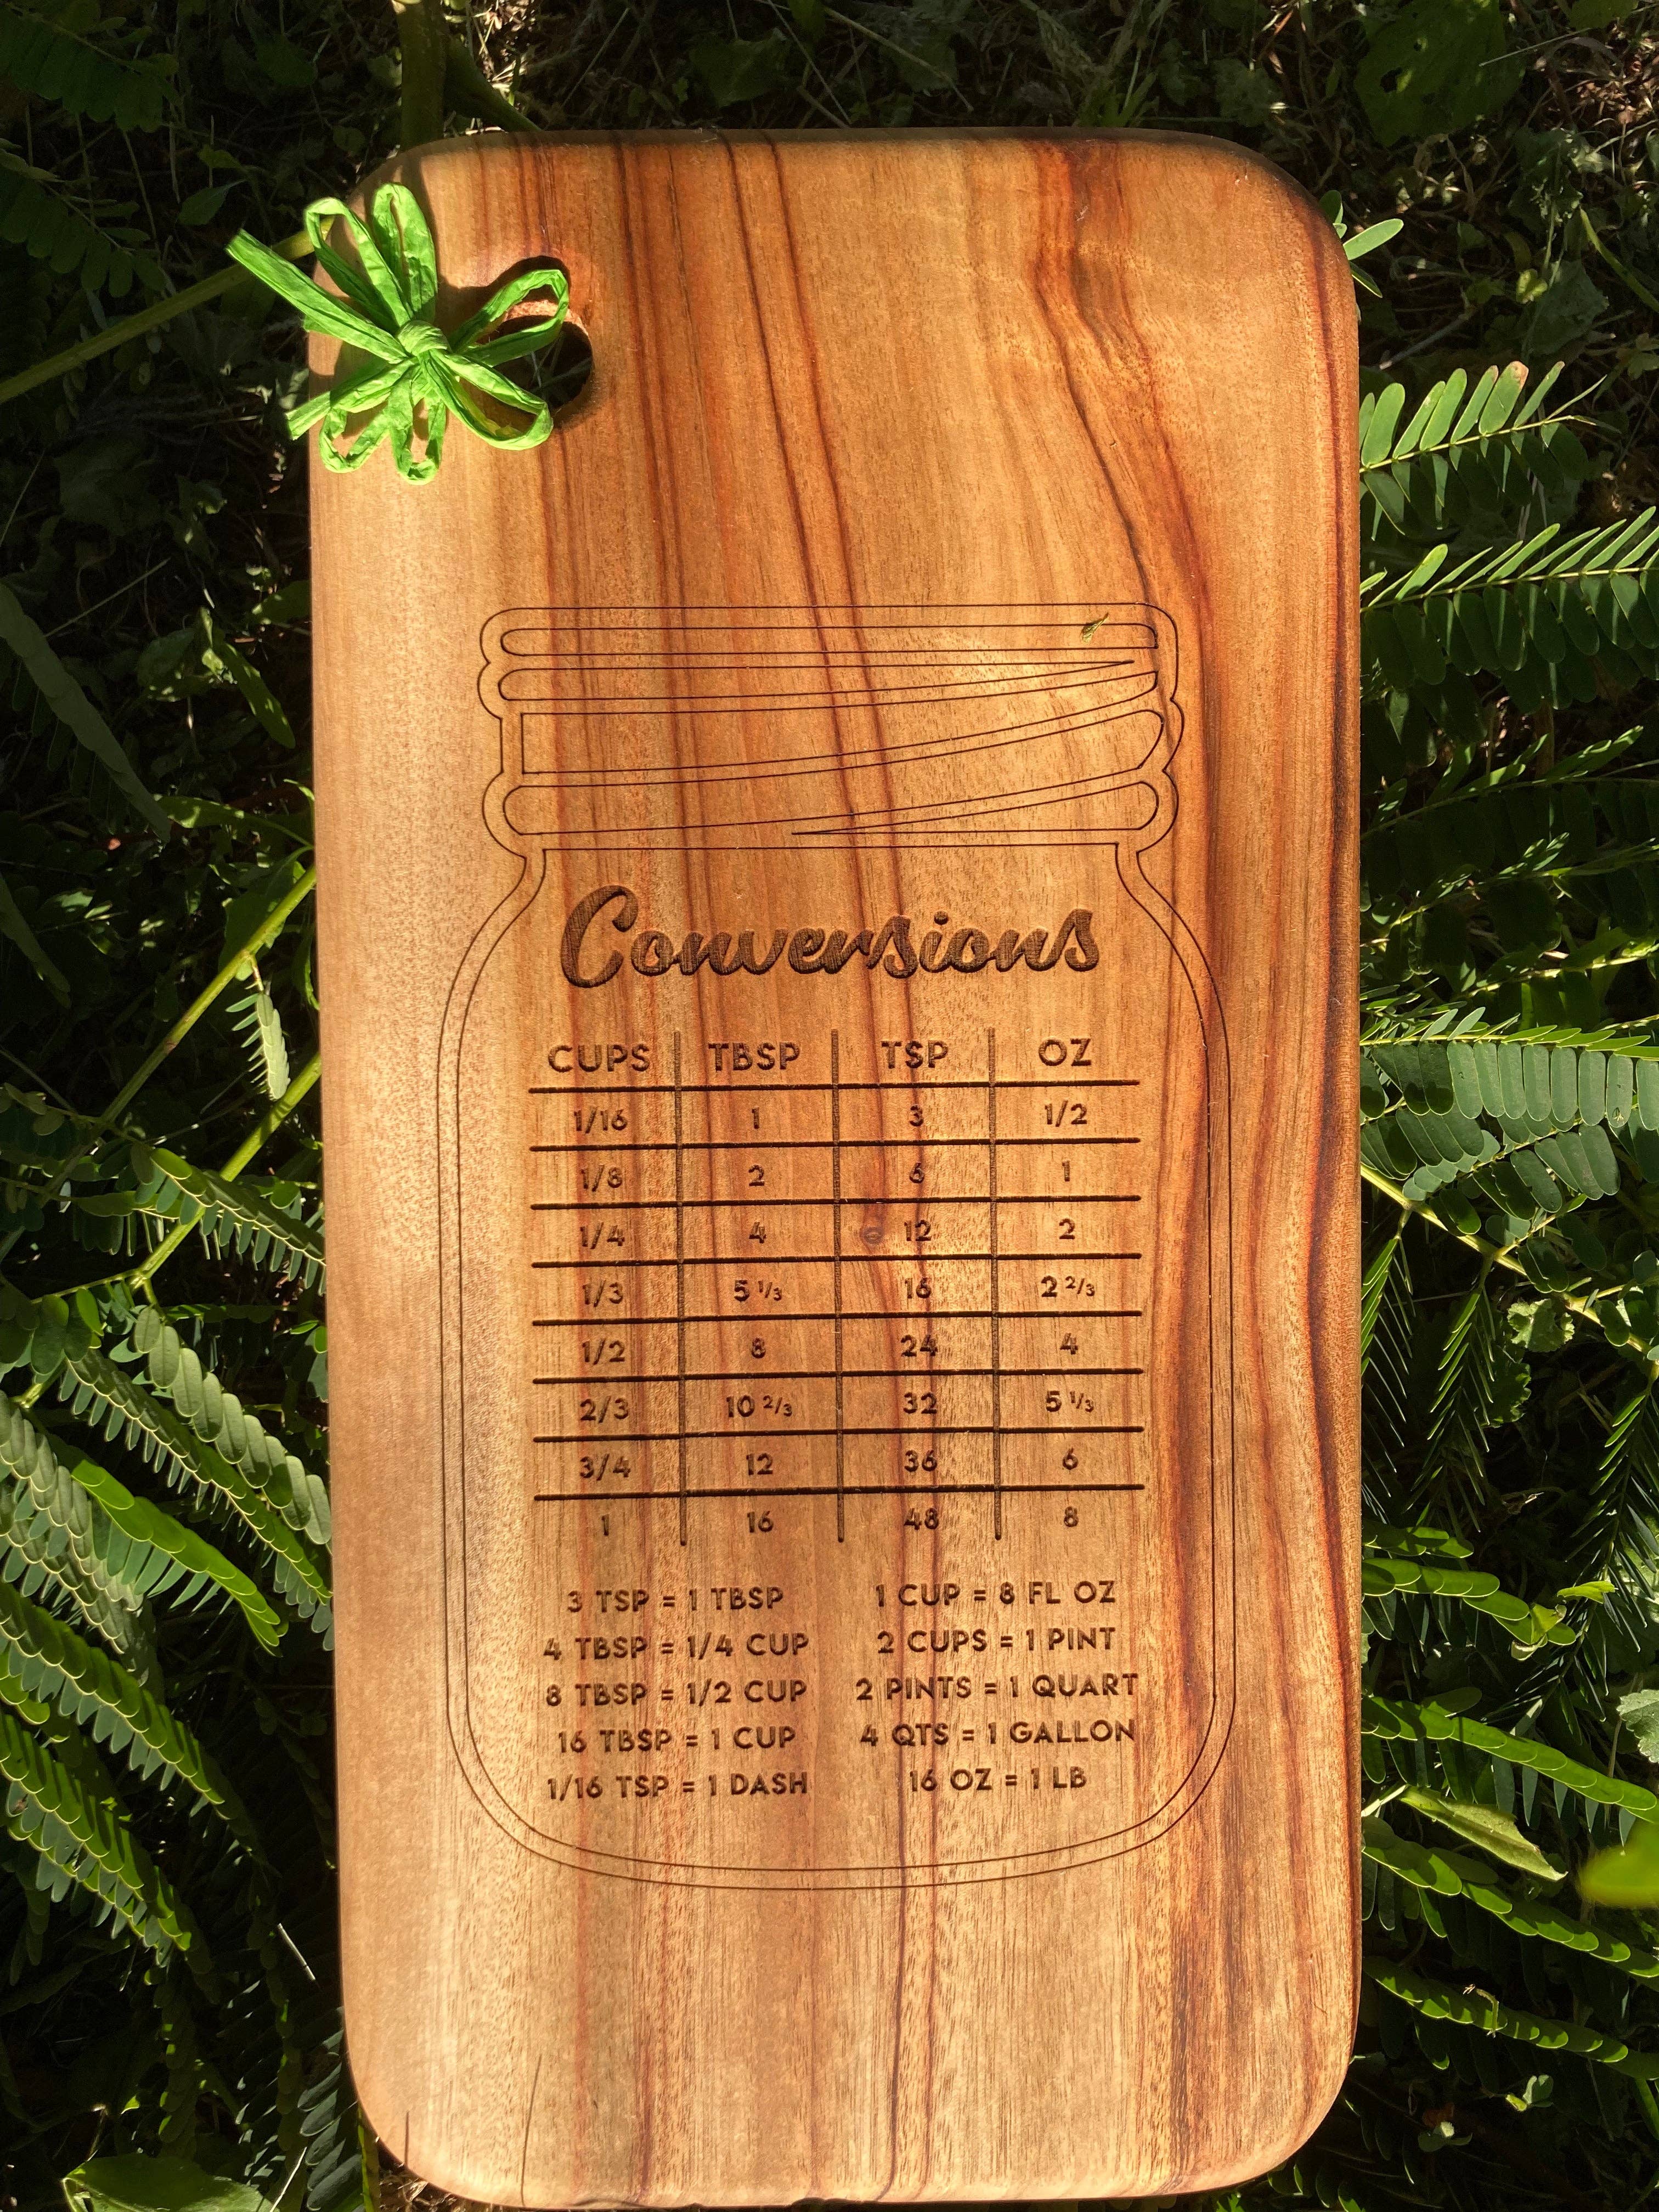 Conversions
CUPS TBSP TSP OZ
1/16 1 3 1/2
1/8 2 6 1
1/4 4 12 2
1/3 5 1/3 16 2 2/3
1/2 8 24 4
2/3 10 2/3 32 5 1/3
3/4 12 36 6
1 16 48 8
3 TSP = 1 TBSP 1 CUP = 8 FL OZ
4 TBSP = 1/4 CUP 2 CUPS = 1 PINT
8 TBSP = 1/2 CUP 2 PINTS = 1 QUART
16 TBSP = 1 CUP 4 QTS = 1 GALLON
1/16 TSP = 1 DASH 16 OZ = 1 LB